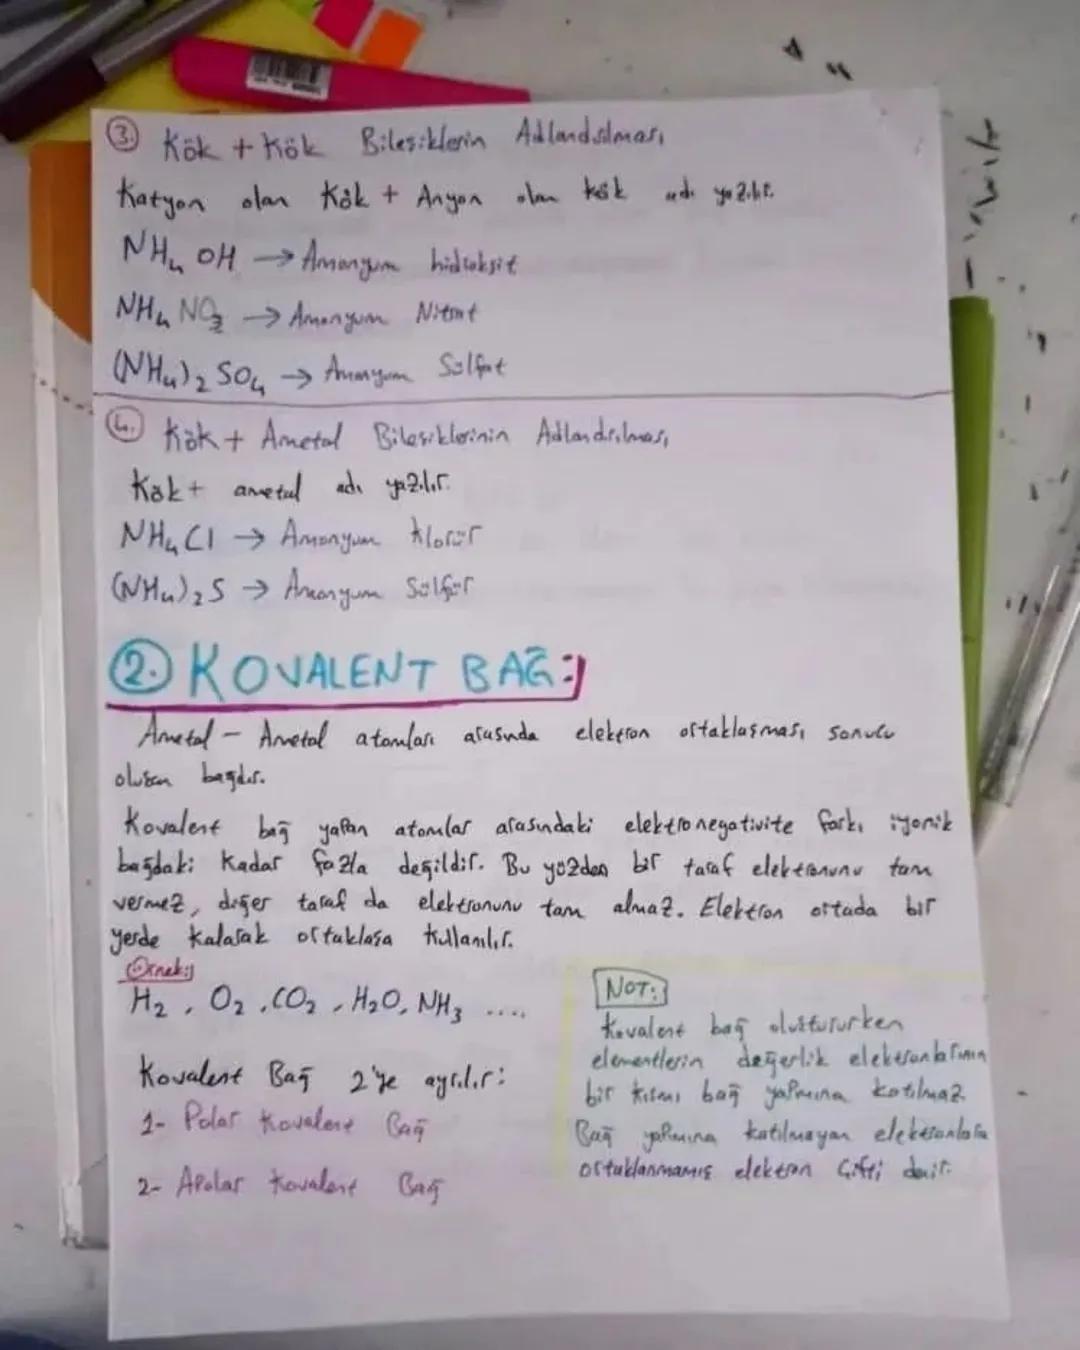 3. Kök + Kök Bileşiklerin Adlandırılması
Katyon olan Kök + Anyon olan kök adı yazılır.
NH₄ OH → Amonyum hidroksit
NH₄ NO₃ → Amonyum Nitrat
(NH₄)₂ SO₄ → Amonyum Sülfat
4. Kök + Ametal Bileşiklerinin Adlandırılması
Kök + ametal adı yazılır.
NH₄Cl → Amonyum klorür
(NH₄)₂S → Amonyum Sülfür
2. KOVALENT BAĞ:
Ametal - Ametal atomları arasında elektron ortaklaşması sonucu
oluşan bağdır.
Kovalent bağ yapan atomlar arasındaki elektronegativite farkı iyonik
bağdaki kadar fazla değildir. Bu yüzden bir taraf elektronunu tam
vermez, diğer taraf da elektronunu tam almaz. Elektron ortada bir
yerde kalarak ortaklaşa kullanılır.
Örnek:
H₂, O₂, CO₂, H₂O, NH₃ ....
Kovalent Bağ 2'ye ayrılır:
1- Polar Kovalent Bağ
2- Apolar Kovalent Bağ
NOT:
Kovalent bağ oluştururken
elementlerin değerlik elektronlarının
bir kısmı bağ yapımına katılmaz.
Bağ yapımına katılmayan elektronlara
ortaklanmamış elektron çifti denir.